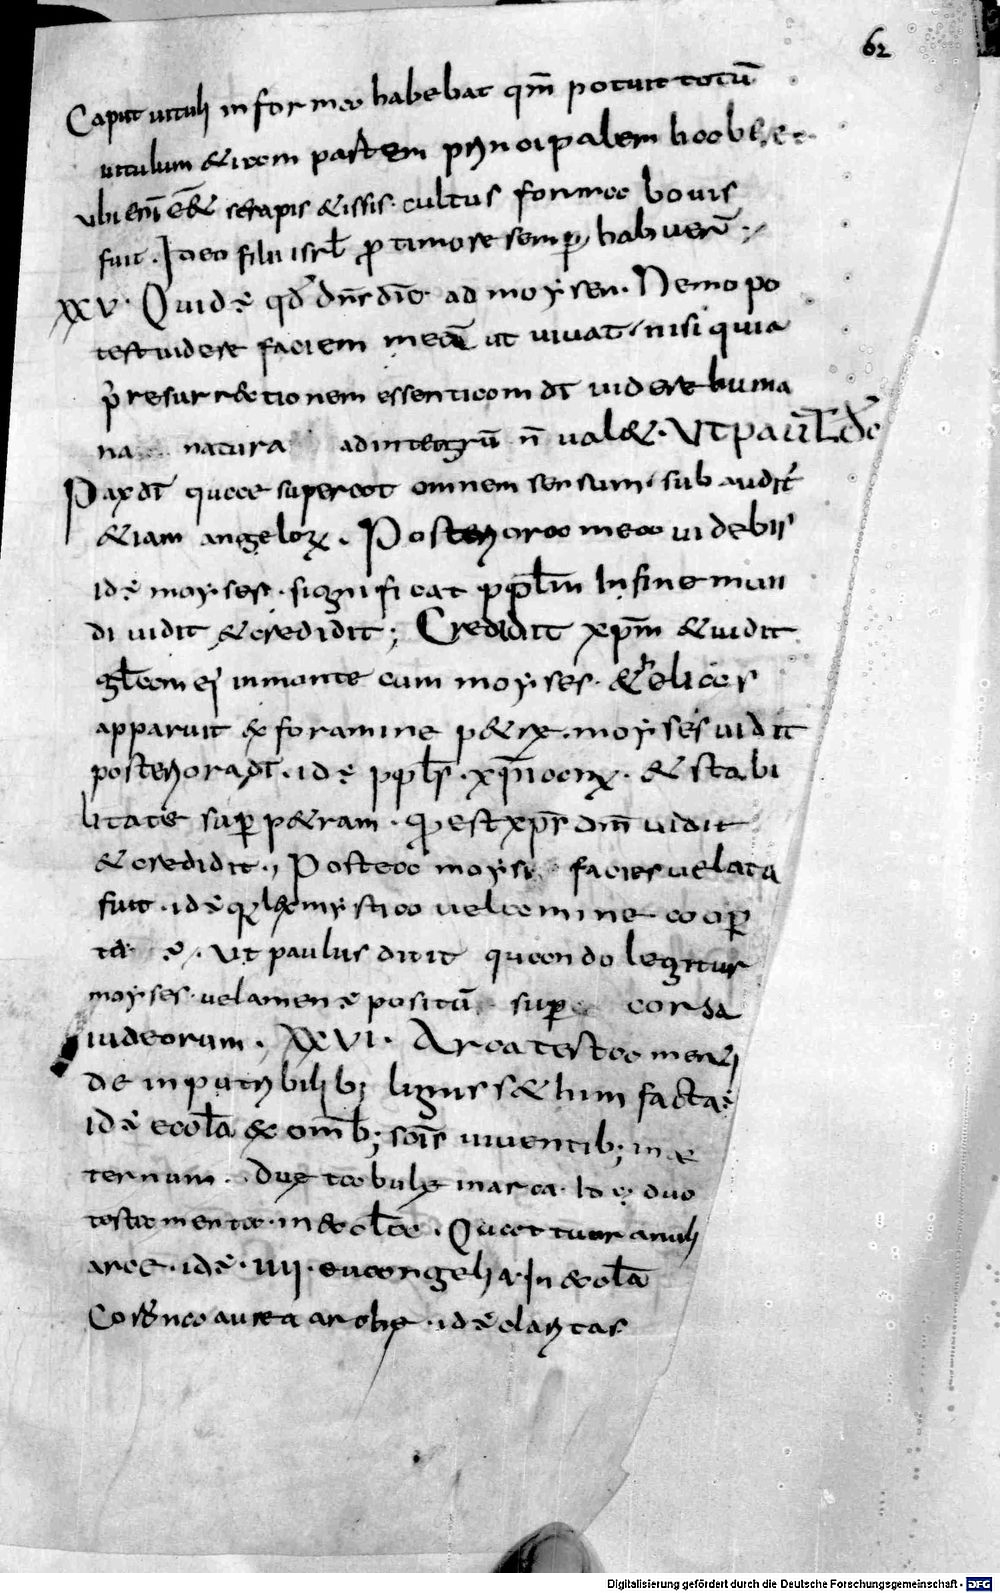 62
Caput uituli informa habebat qm̄ potuit totū
uitulum & iam partem principalem habere
ubi enī ē& serapis & issis · cultus forma bouis
fuit · Ideo filii isrl̄ p̄ timore semp̄ habuer̄ ·
XXV · Quid ē qd̄ dn̄s dic̄ ad moysen · Nemo po
test uidere faciem meā ut uiuat / nisi quia
p̄ resurr&tionem essentiam dī uidere huma
na natura ad integrū n̄ ual& · Ut paul̄ dc̄
Pax dī quae superat omnem sensum · sub audit̄
&iam angeloꝝ · Posteriora mea uidebis
id ē moyses · significat ppl̄m In fine mun
di uidit & credidit ; Credidit xp̄m & uidit
gl̄am ei in monte cum moyses · & elias
apparuit ex foramine p&rę · moyses uidit
posteriora dī · id ē ppl̄s · xp̄ianꝝ · & stabi
litate sup̄ p&ram · q̄ est xp̄s dm̄ uidit
& credidit ·, Postea moysi facies uelata
fuit · id ē q lex mystico uelamine coop̄
ta ē · Ut paulus dicit quando legitur
moyses · uelamen ē positū sup̄ corda
iudeorum · XXVI · Arca testamenti
de inputribilib; lignis s&him facta ē
id ē eccl̄a ex om̄ib; sc̄is uiuentib; in ae
ternum · Duę tabulę in arca · Id ē duo
testamenta · in eccl̄a · Quattuor anuli
arcę · id ē · IIII · euangelia · In eccl̄a
Corona aurea archę · id ē claritas
Digitalisierung gefördert durch die Deutsche Forschungsgemeinschaft - DFG